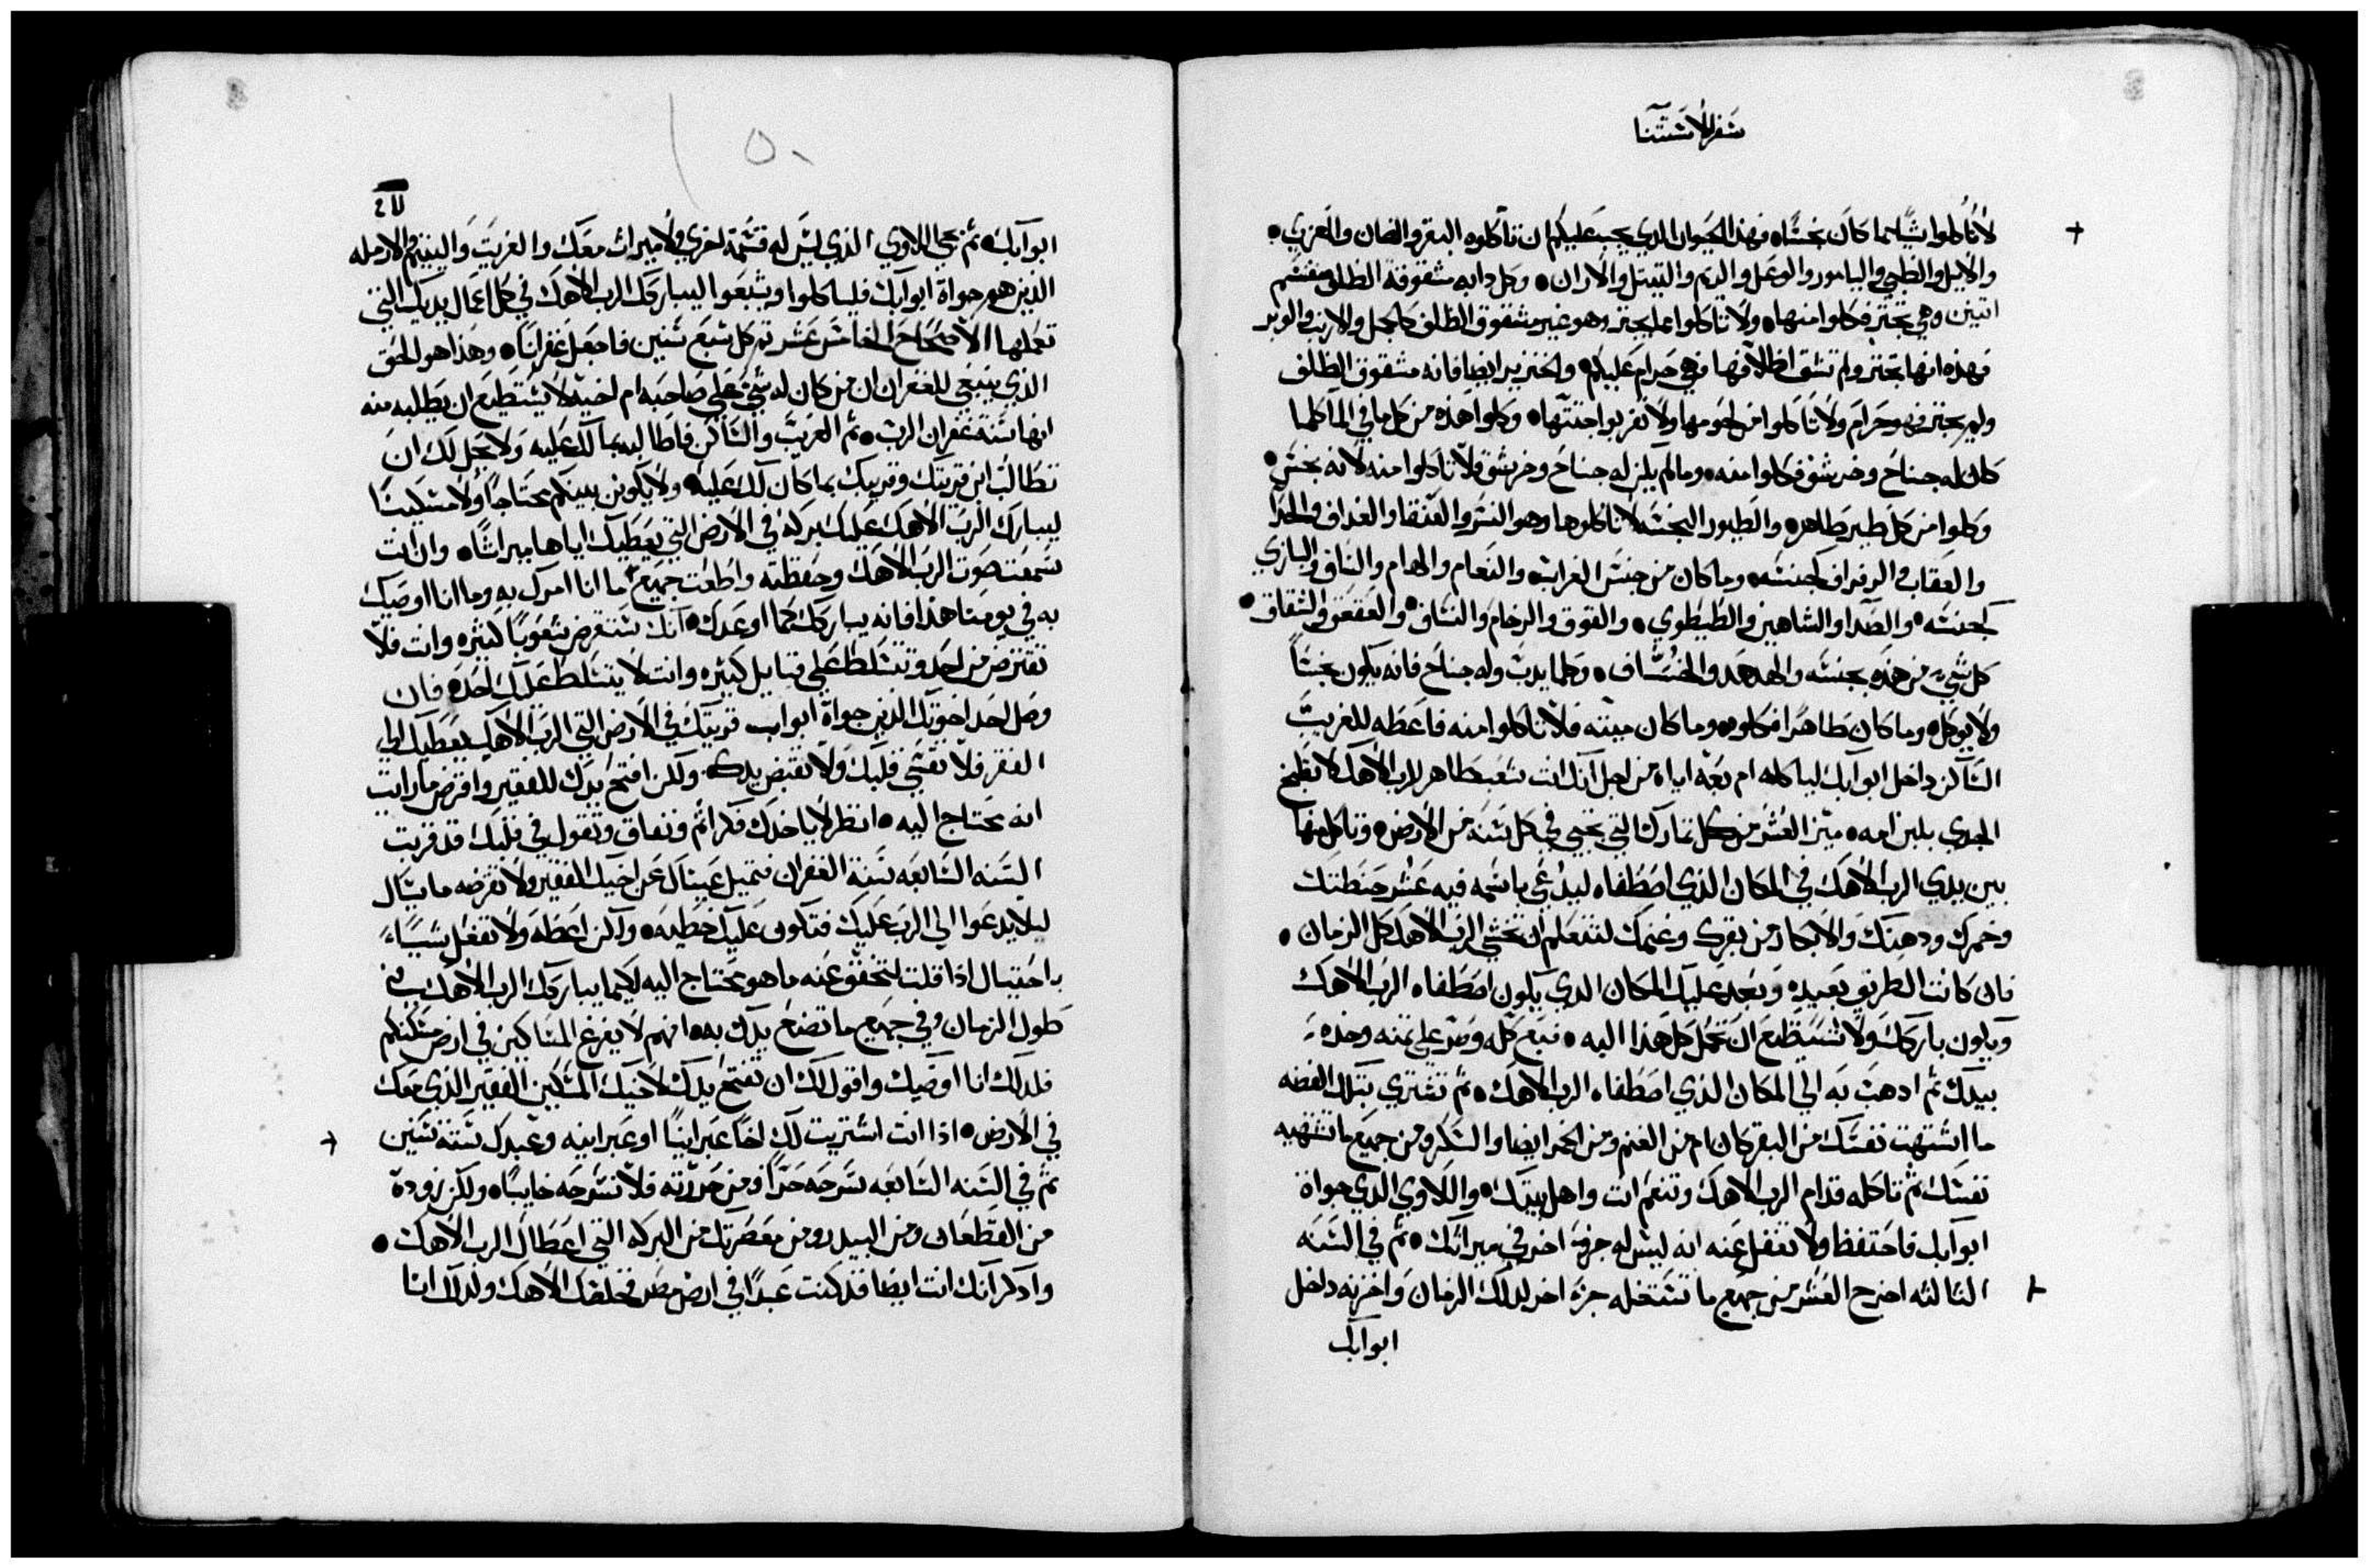 سفر الاستثنا
لا تاكلوا شيًا مما كان نجسًا٥ فهذا الحيوان الدي يجب عليكم ان تاكلوه البقر والضان والعزي٥
والايل والظبي واليامور والوعل والريم والتيتل والاران٥ وكل دابه مشقوقة الظلف مقسم
اتنين وهي تجتر فكلوا منها٥ ولا تاكلوا مما يجتر وهو غير مشقوق الظلف كالجمل والارنب والوبر
فهذه انها تجتر ولم تشق اظلافها فهي حرام عليكم٥ والخنزير ايضا فانه مشقوق الظلف
ولم يجتر فهو حرام ولا تاكلوا من لحومها ولا تقربوا جتتها٥ وكلوا هذه من كل ما في الما كلما
كان له جناح وخرشق فكلوا منه٥ وما لم يكن له جناح وخرشق فلا تاكلوا منه لانه نجس٥
وكلوا من كل طير طاهر٥ والطيور النجسه لا تاكلوها وهو النسر والعنقا والغداف والحدا
والعقاب والرفراف كجنسه٥ وما كان من جنس الغراب٥ والنعام والهام والساف والبازي
كجنسه٥ والصدا والشاهين والطيطوي٥ والقوق والرخام والنساف٥ والعقعق والشقاق٥
كل شيء من هذه بجنسه والهدهد والخشاف٥ وكلما يدب وله جناح فانه يكون نجسًا
ولا يوكل٥ وما كان طاهرًا فكلوه٥ وما كان ميته فلا تاكلوا منه فاعطه للغريب
الساكن داخل ابوابك لياكله ام بعه اياه من اجل انك انت شعب طاهر للرب الاهك لا تطبخ
الجدي بلبن امه٥ ميز العشر من كل تمارك التي تجيي في كل سنه من الارض٥ وتاكل منها
بين يدي الرب الاهك في المكان الذي اصطفاه ليدعي باسمه فيه عشر حنطتك
وخمرك ودهنك والابكار من بقرك وغنمك لتتعلم ان تخشي الرب الاهك كل الزمان٥
فان كانت الطريق بعيده وبعد عليك المكان الدي يكون اصطفاه الرب الاهك
ويكون باركك ولا تستطيع ان تحمل كل هذا اليه٥ فبع كله وصر علي تمنه وخده
بيدك تم ادهب به الي المكان الذي اصطفاه الرب الاهك٥ تم تشتري بتلك الفضه
ما اشتهت نفسك من البقر كان ام من الغنم ومن الخمر ايضا والسكر ومن جميع ما تشتهيه
نفسك تم تاكله قدام الرب الاهك وتنعم انت واهل بيتك٥ واللاوي الدي جواة
ابوابك فاحتفظ ولا تغفل عنه انه ليس له جزء اخر في ميراتك٥ تم في السنه
التالته اخرج العشر من جميع ما تستغله جزء اخر لدلك الزمان واخزنه داخل
ابوابك
ابوابك٥ تم يجي اللاوي الذي ليس له قسمة اخري ولا ميرات معك والغريب واليتيم والارمله
الذين هم جواة ابوابك فلياكلوا ويشبعوا ليباركك الرب الاهك في كل اعمال يديك التي
تعملها الاصحاح الخامس عشر تم كل سبع سنين فاجعل غفرانا٥ وهذا هو الحق
الذي ينبغي للغفران ان من كان له شي علي صاحبه ام اخيه لا يستطيع ان يطلبه منه
انها سنة غفران الرب٥ تم الغريب والساكن فاطالبه بما لك عليه ولا يحل لك ان
تطالب ابن قريتك وقريبك بما كان لك عليه٥ ولا يكونن بينكم محتاجا ولا مسكينا
ليبارك الرب الاهك عليك بركه في الارض التي يعطيك اياها ميراتًا٥ وان انت
سمعت صوت الرب الاهك وحفظته واطعت جميع ما انا امرك به وما انا اوصيك
به في يومنا هذا فانه يباركك كما اوعدك٥ انك ستقرض شعوبًا كتيره وانت فلا
تقترض من احد وتتسلط علي قبايل كتيره وانت لا يتسلط عليك احد٥ فان
وصل احد اخوتك الذين جواة ابواب قريتك في الارض التي الرب الاهك يعطيك الي
الفقر فلا تقسي قلبك ولا تقبض يدك. ولكن افتح يدك للفقير واقرض ما رايت
انه يحتاج اليه٥ انظر لا ياخدك فكر اتم ونفاق وتقول في قلبك قد قربت
السنه السابعه سنة الغفران فتميل عيناك عن اخيك الفقير ولا تقرضه ما يسال
ليلا يدعوا الي الرب عليك فتكون عليك خطيه٥ ولكن اعطه ولا تفعل شيًا
باحتيال اذا قلت لتحقق عنه ما هو يحتاج اليه لكيما يباركك الرب الاهك في
طول الزمان وفي جميع ما تضع يدك به٥ انهم لا يفرغ المساكين في ارض مسكنكم
فلدلك انا اوصيك واقول لك ان تفتح يدك لاخيك المسكين الفقير الذي معك
في الارض٥ اذا انت اشتريت لك اخًا عبرانيًا او عبرانيه وعبدك ستة سنين
تم في السنه السابعه سرحه حرًا ومن حررته فلا تسرحه خايبًا٥ ولكن زوده
من القطعان ومن البيدر ومن معصرتك من البركه التي اعطاك الرب الاهك٥
وادكر انك انت ايضا قد كنت عبدًا في ارض مصر فخلصك الاهك ولدلك انا